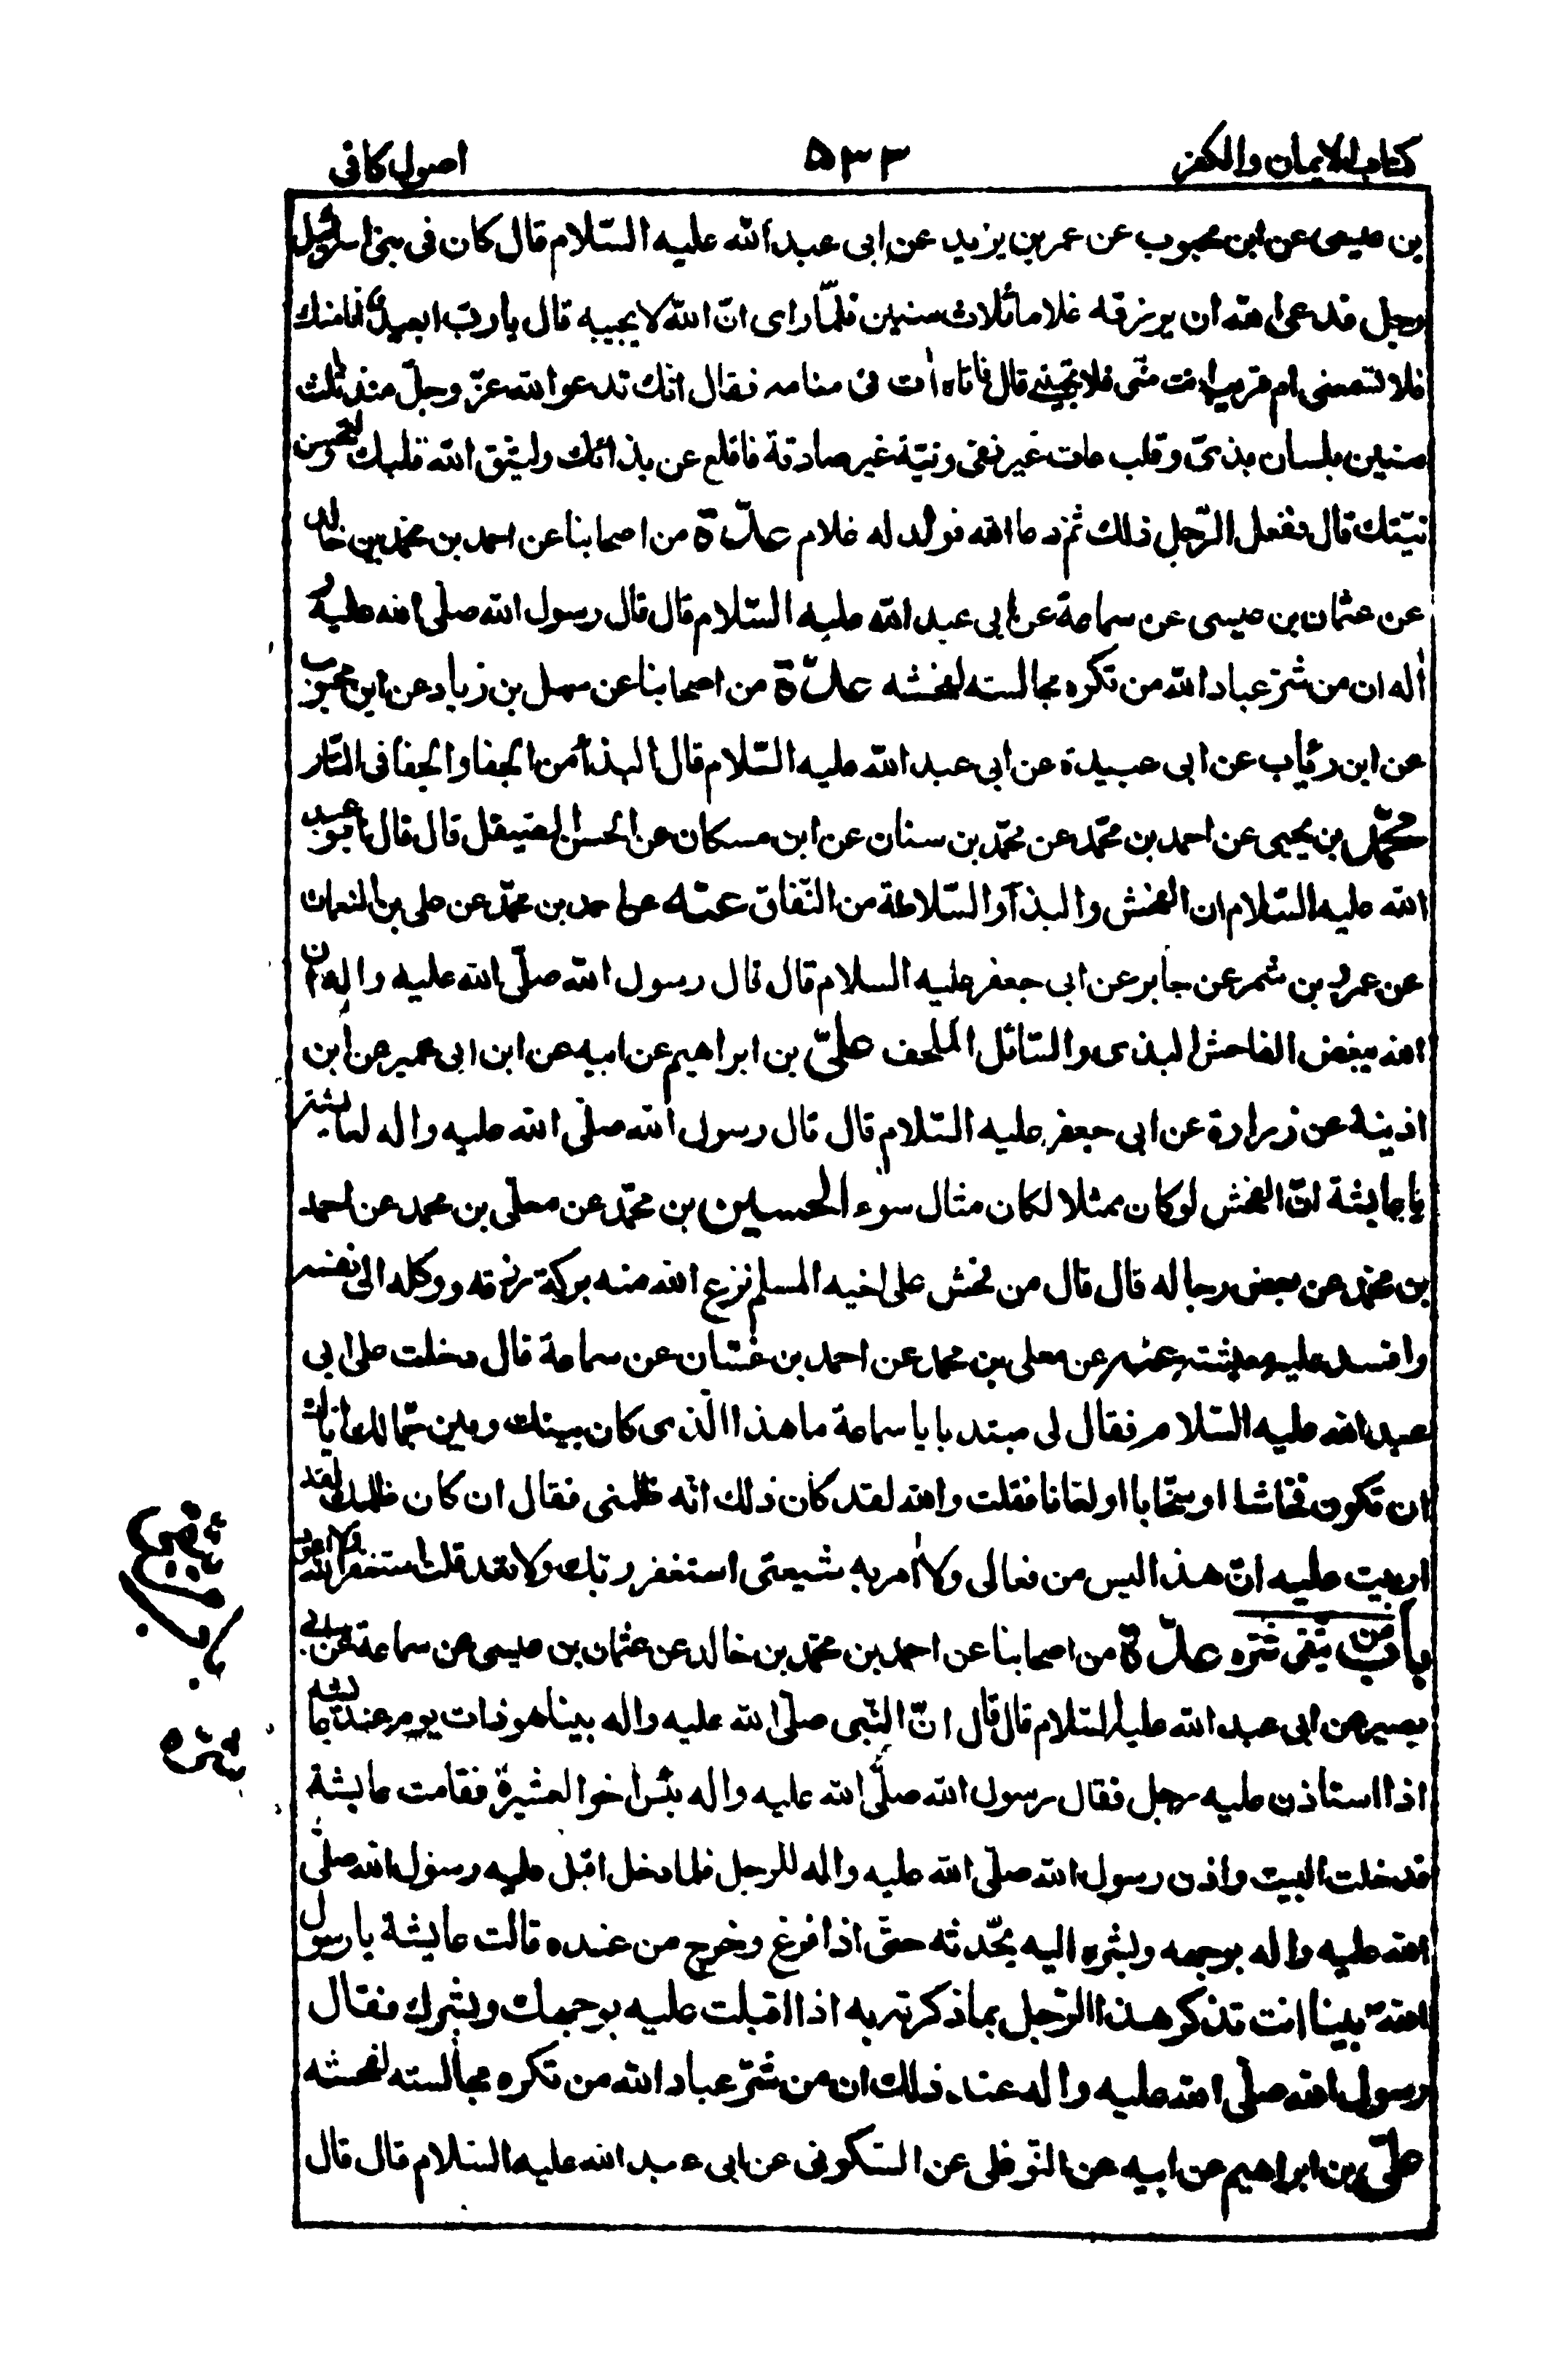 كتاب الايمان والكفر ٥٣٣ اصول كافى
بن عيسى عن ابن محبوب عن عمر بن يزيد عن ابى عبد الله عليه السّلام قال كان فى بنى اسرائيل
رجل فدعى الله ان يرزقه غلاما ثلاث سنين فلمّا راى انّ الله لا يجيبه قال يا ربّ ابعيد انا منك
فلا تسمعنى ام قريب انت منّى فلا تجيبنى قال فاتاه اٰت فى منامه فقال انّك تدعو الله عزّ وجلّ منذ ثلث
سنين بلسان بذىّ وقلب عات غير نقى ونيّة غير صادقة فاقلع عن بذائك وليتق الله قلبك ولتحسن
نيّتك قال ففعل الرّجل ذلك ثم دعا الله فولد له غلام عدّة من اصحابنا عن احمد بن محمّد بن خالد
عن عثمان بن عيسى عن سماعة عن ابى عبد الله عليه السّلام قال قال رسول الله صلّى الله عليه و
اٰله ان من شرّ عباد الله من تكره مجالسته لفحشه عدّة من اصحابنا عن سهل بن زياد عن ابن محبوب
عن ابن رئاب عن ابى عبيدة عن ابى عبد الله عليه السّلام قال البذاء من الجفا والجفا فى النّار
محمّد بن يحيى عن احمد بن محمّد عن محمّد بن سنان عن ابن مسكان عن الحسن الصّيقل قال قال ابو عبد
الله عليه السّلام ان الفحش والبذآء والسّلاطة من النّفاق عنه عن احمد بن محمّد عن على بن النعمان
عن عمرو بن شمر عن جابر عن ابى جعفر عليه السلام قال قال رسول الله صلّى الله عليه واله ان
الله يبغض الفاحش البذى والسّائل الملحف علىّ بن ابراهيم عن ابيه عن ابن ابى عمير عن ابن
اذينة عن زرارة عن ابى جعفر عليه السّلام قال قال رسول الله صلّى الله عليه واله لعايشة
يا عايشة انّ الفحش لو كان ممثلا لكان مثال سوء الحسين بن محمّد عن معلّى بن محمد عن احمد
بن محمّد عن بعض رجاله قال قال من فحش على اخيه المسلم نزع الله منه بركة رزقه ووكله الى نفسه
وافسد عليه معيشته عنه عن معلى بن محمد عن احمد بن غسّان عن سماعة قال دخلت على ابى
عبد الله عليه السّلام فقال لى مبتديا يا سماعة ما هذا الّذى كان بينك وبين جمّالك اياك
ان تكون فحّاشا او سخّابا او لعّانا فقلت والله لقد كان ذلك انّه ظلمنى فقال ان كان ظلمك لقد
اربيت عليه انّ هذا ليس من فعالى ولا اٰمر به شيعتى استغفر ربّك ولا تعد قلت استغفر الله ولا اعود
باب من يتقى شرّه عدّة من اصحابنا عن احمد بن محمّد بن خالد عن عثمان بن عيسى عن سماعة عن ابى
بصير عن ابى عبد الله عليه السّلام قال قال انّ النّبى صلّى الله عليه واله بينا هو ذات يوم عند عايشة
اذا استاذن عليه رجل فقال رسول الله صلّى الله عليه واله بئس اخو العشيرة فقامت عايشة
فدخلت البيت واذن رسول الله صلّى الله عليه واله للرجل فلما دخل اقبل عليه رسول الله صلّى
الله عليه واله بوجهه وبشره اليه يحّدثه حتّى اذا فرغ وخرج من عنده قالت عايشة يا رسول
الله بينا انت تذكر هذا الرّجل بما ذكرته به اذا اقبلت عليه بوجهك وبشرك فقال
رسول الله صلّى الله عليه واله عند ذلك ان من شرّ عباد الله من تكره مجالسته لفحشه
علىّ بن ابراهيم عن ابيه عن النّوفلى عن السّكونى عن ابى عبد الله عليه السّلام قال قال
باب من يتقى
شره